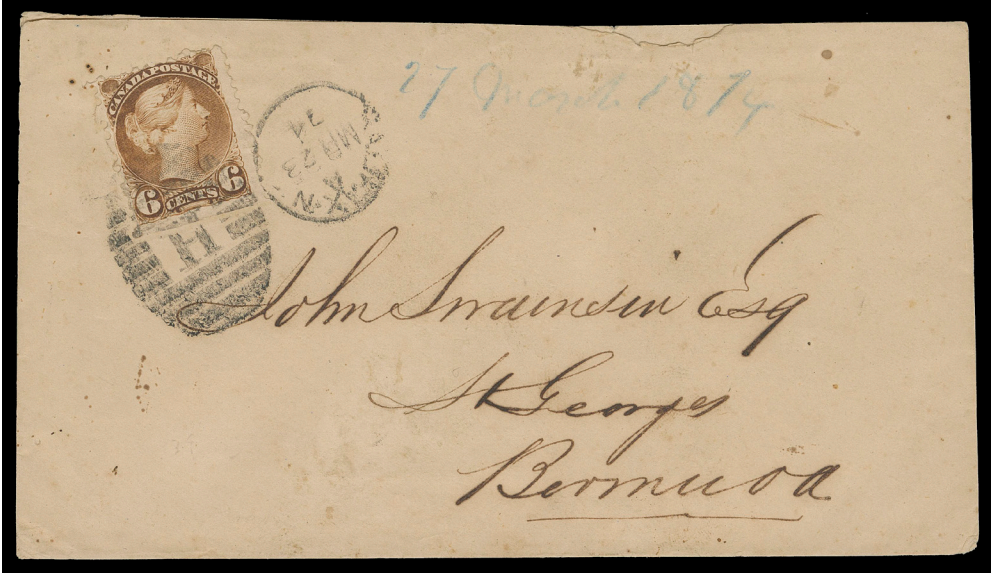 CANADA POSTAGE
6 CENTS 6
MR 23
74
H
27 March 1874
John Swainson Esq
St Georges
Bermuda